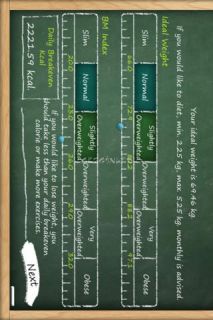 Your ideal weight is 69.46 kg.
If you would like to diet, min. 2.25 kg, max 5.25 kg monthly is advised.
Ideal Weight
Slim
Normal
Slightly
Overweighted
Overweighted
Very
Overweighted
Obese
BM Index
Slim
Normal
Slightly
Overweighted
Overweighted
Very
Overweighted
Obese
Daily Breakeven
Kcal
2221.59 kcal.
If you would like to lose weight, you
should take less than your daily breakeven
calorie or make more exercises.
Next